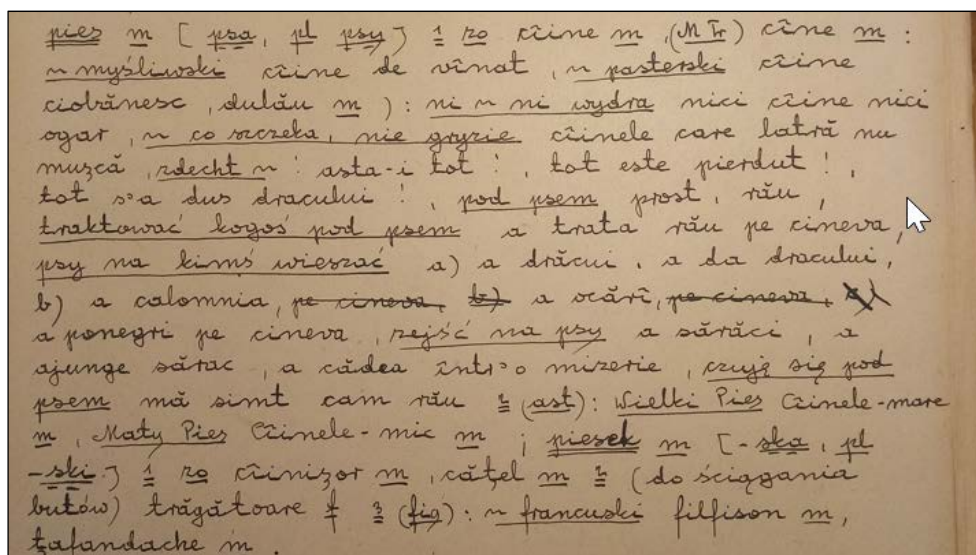 pies m [psa, pl psy] 1 zo cîine m, (M Tr) cîne m :
~ myśliwski cîine de vînat, ~ pasterski cîine
ciobănesc, dulău m ) : ni ~ ni wydra nici cîine nici
ogar, ~ co szczeka, nie gryzie cîinele care latră nu
mușcă, zdechł ~ ! asta-i tot !, tot este pierdut !,
tot s-a dus dracului !, pod psem prost, rău,
traktować kogoś pod psem a trata rău pe cineva,
psy na kimś wieszać a) a drăcui, a da dracului,
b) a calomnia, pe cineva, b) a ocărî, pe cineva, c)
a ponegri pe cineva, zejść na psy a sărăci, a
ajunge sărac, a cădea într-o mizerie, czuję się pod
psem mă simt cam rău 2 (ast): Wielki Pies Cîinele-mare
m, Mały Pies Cîinele-mic m ; piesek m [-ska, pl
-ski] 1 zo cîinișor m, cățel m 2 (do ściągania
butów) trăgătoare f 3 (fig): ~ francuski filfison m,
țafandache m.